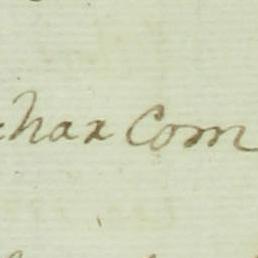 hax Com